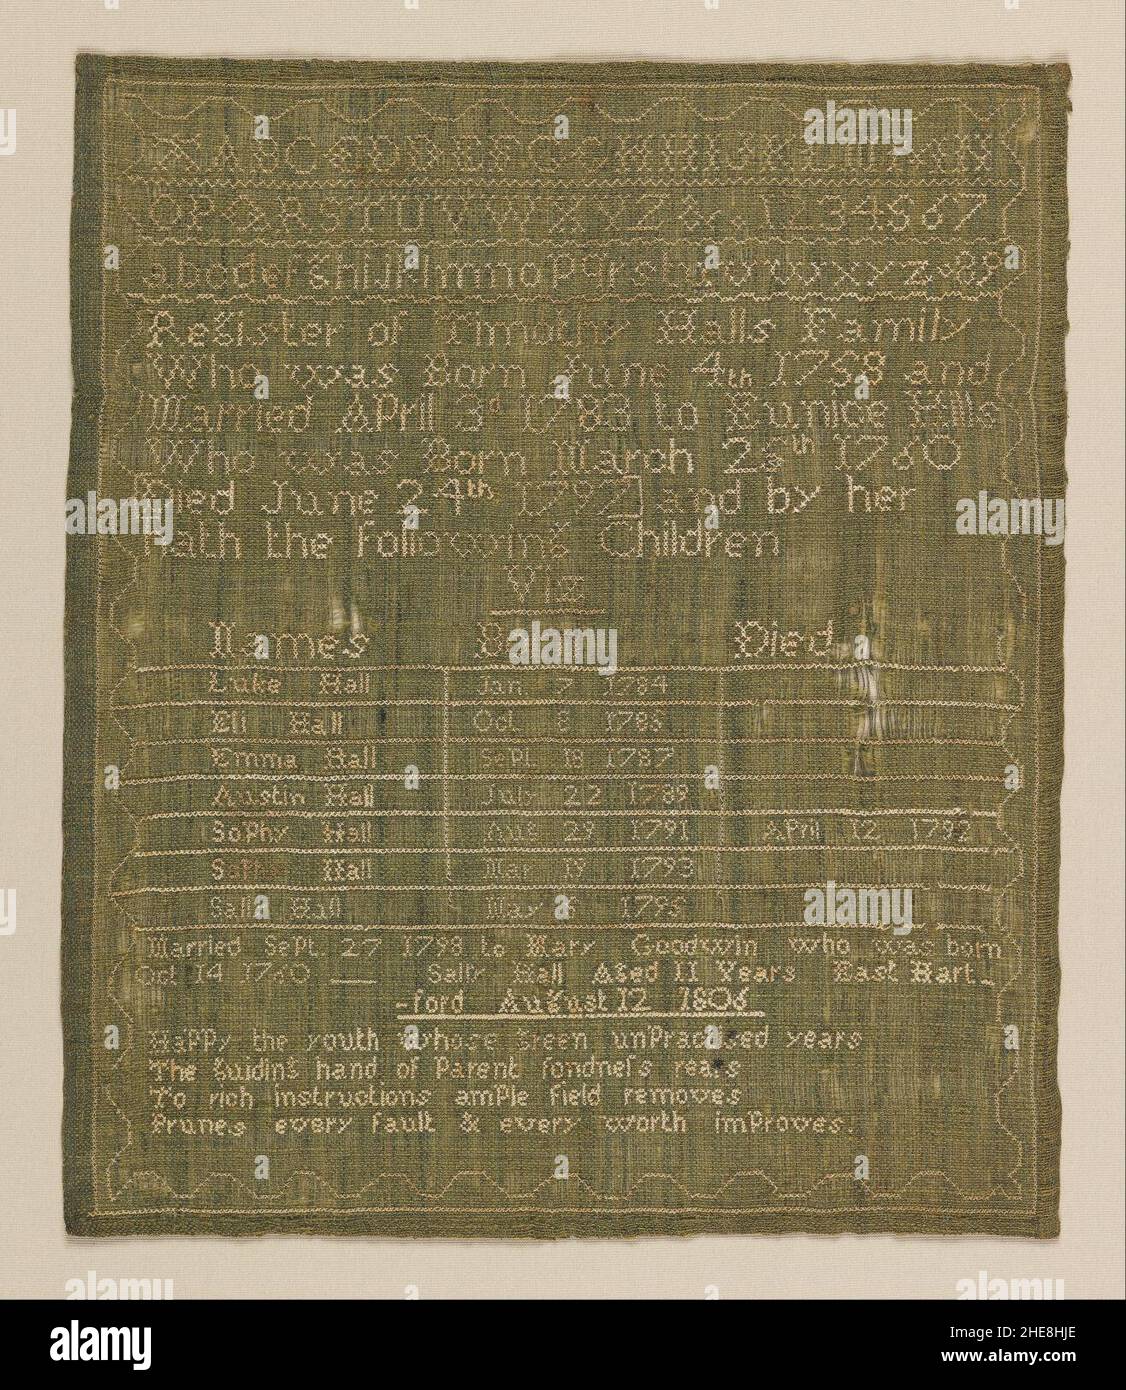 O P Q R S T U V W X Y Z & 1 2 3 4 5 6 7
Register of Timothy Halls Family
Who was Born June 4th 1758 and
Married April 3d 1783 to Eunice Hills
Who was Born March 25th 1760
Died June 24th 1797] and by her
Hath the following Children
Viz
Names Born Died
Luke Hall Jan 7 1784
Eli Hall Oct 8 1785
Emma Hall Sept 18 1787
Austin Hall July 22 1789
Sophy Hall Aug 29 1791 April 12 1792
Hall Mar 19 1793
Sally Hall May 1795
Married Sept 27 1798 to Mary Goodwin who was born
Oct 14 1760 Sally Hall Aged 11 Years East Hart_
-ford August 12 1806
Happy the youth whose green unpractised years
The guiding hand of Parent fondnefs rears
To rich instructions ample field removes
Prunes every fault & every worth improves.
alamy
Image ID: 2HE8HJE
www.alamy.com